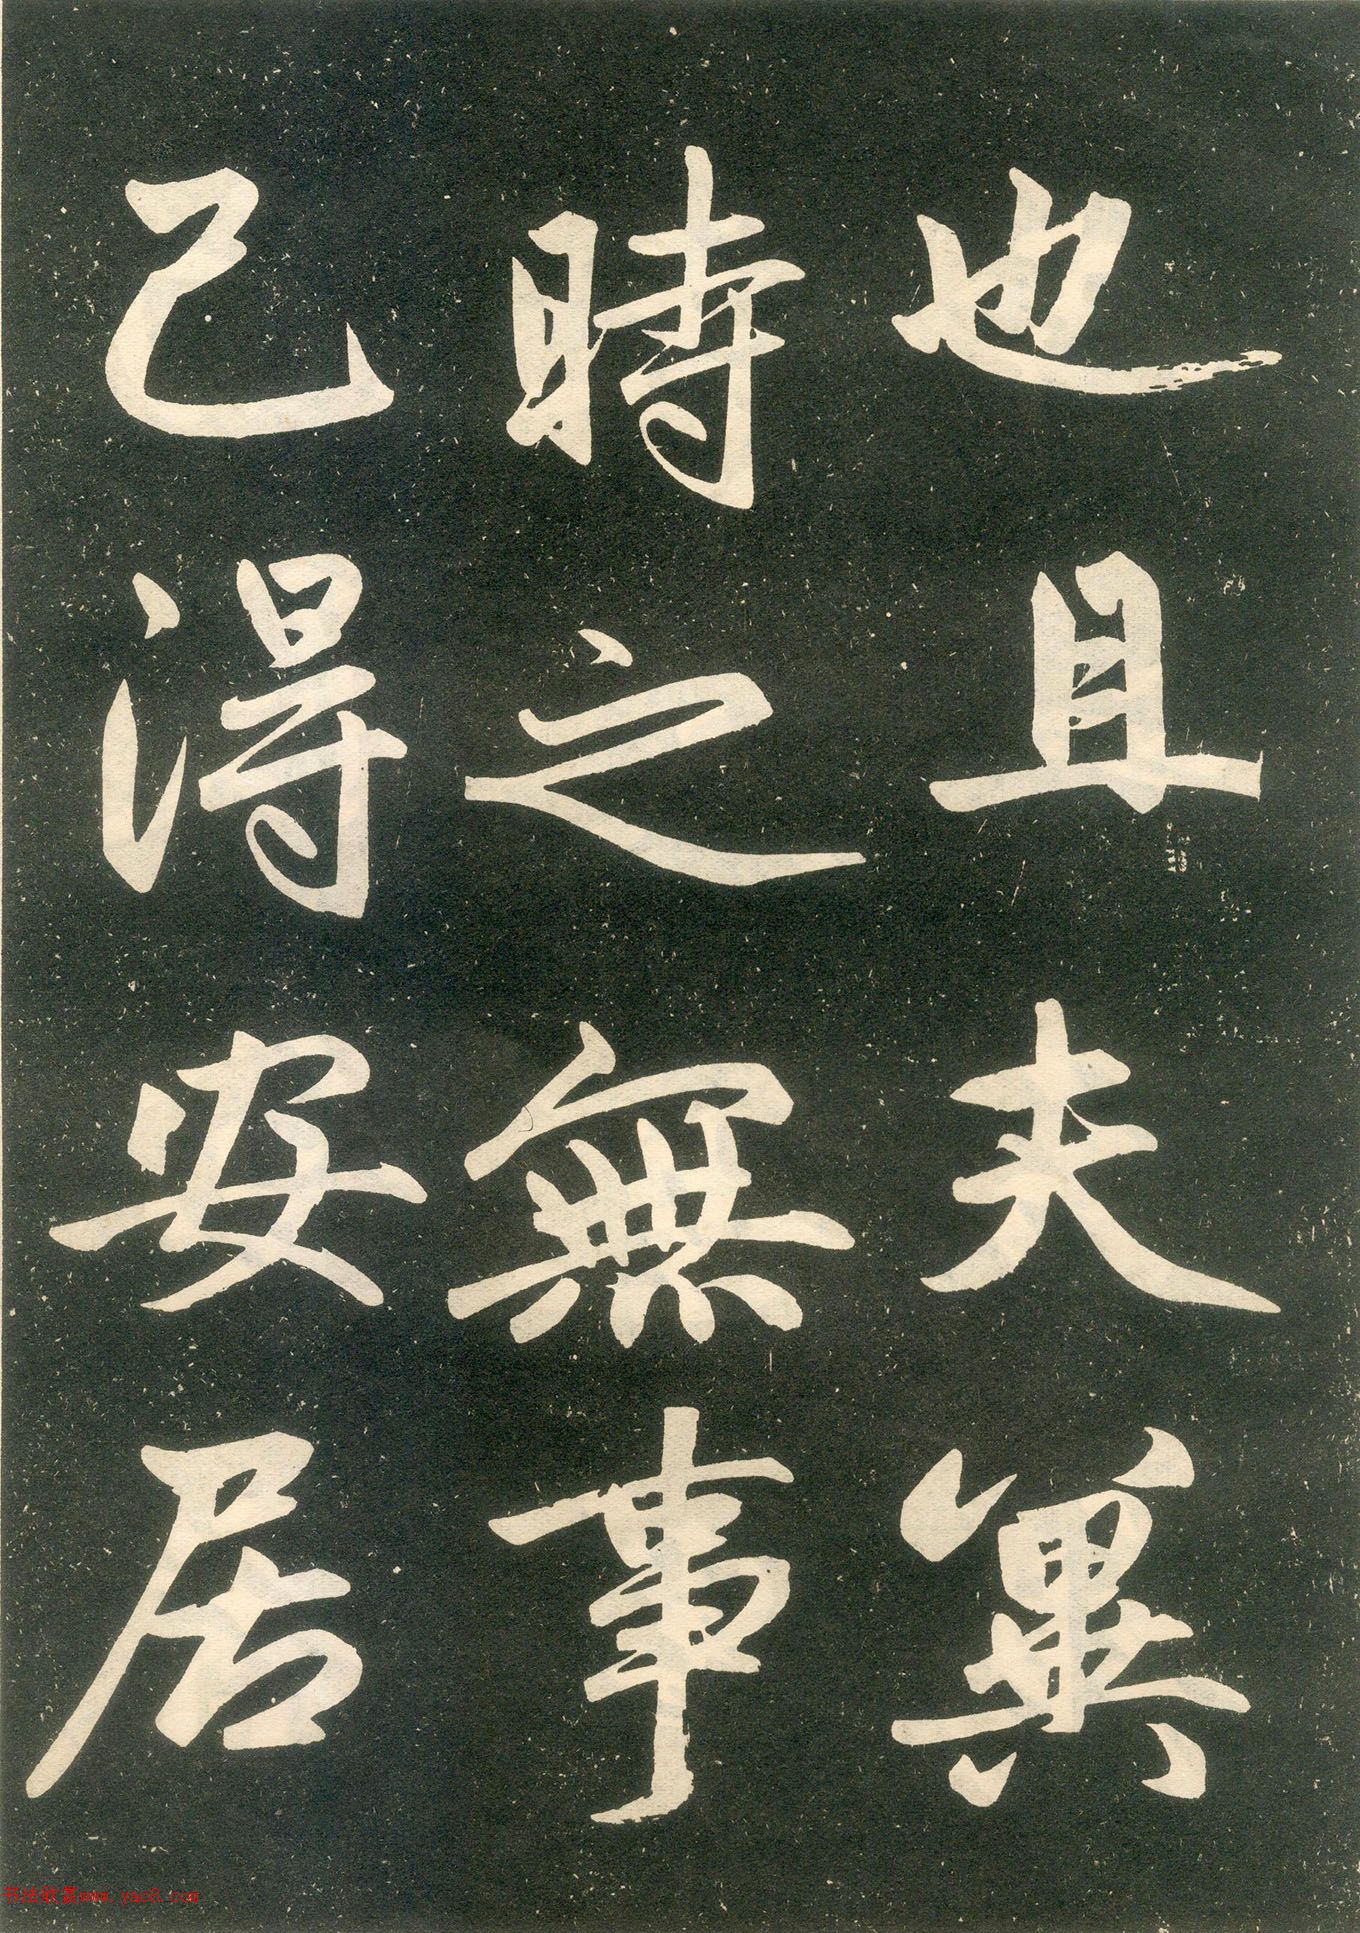 也且夫冀
時之無事
己得安居
书法欣赏www.yac8.com